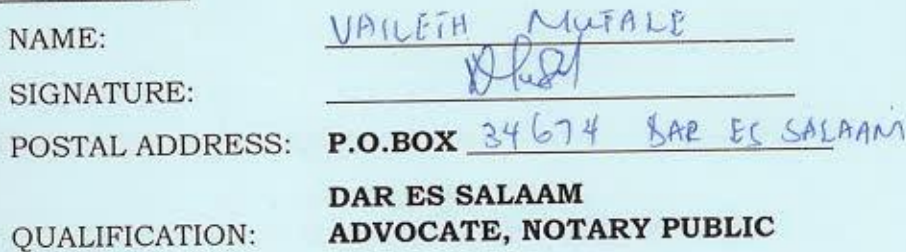 NAME: VAILETH MUTALE
SIGNATURE:
POSTAL ADDRESS: P.O.BOX 34674 DAR ES SALAAM
DAR ES SALAAM
QUALIFICATION: ADVOCATE, NOTARY PUBLIC